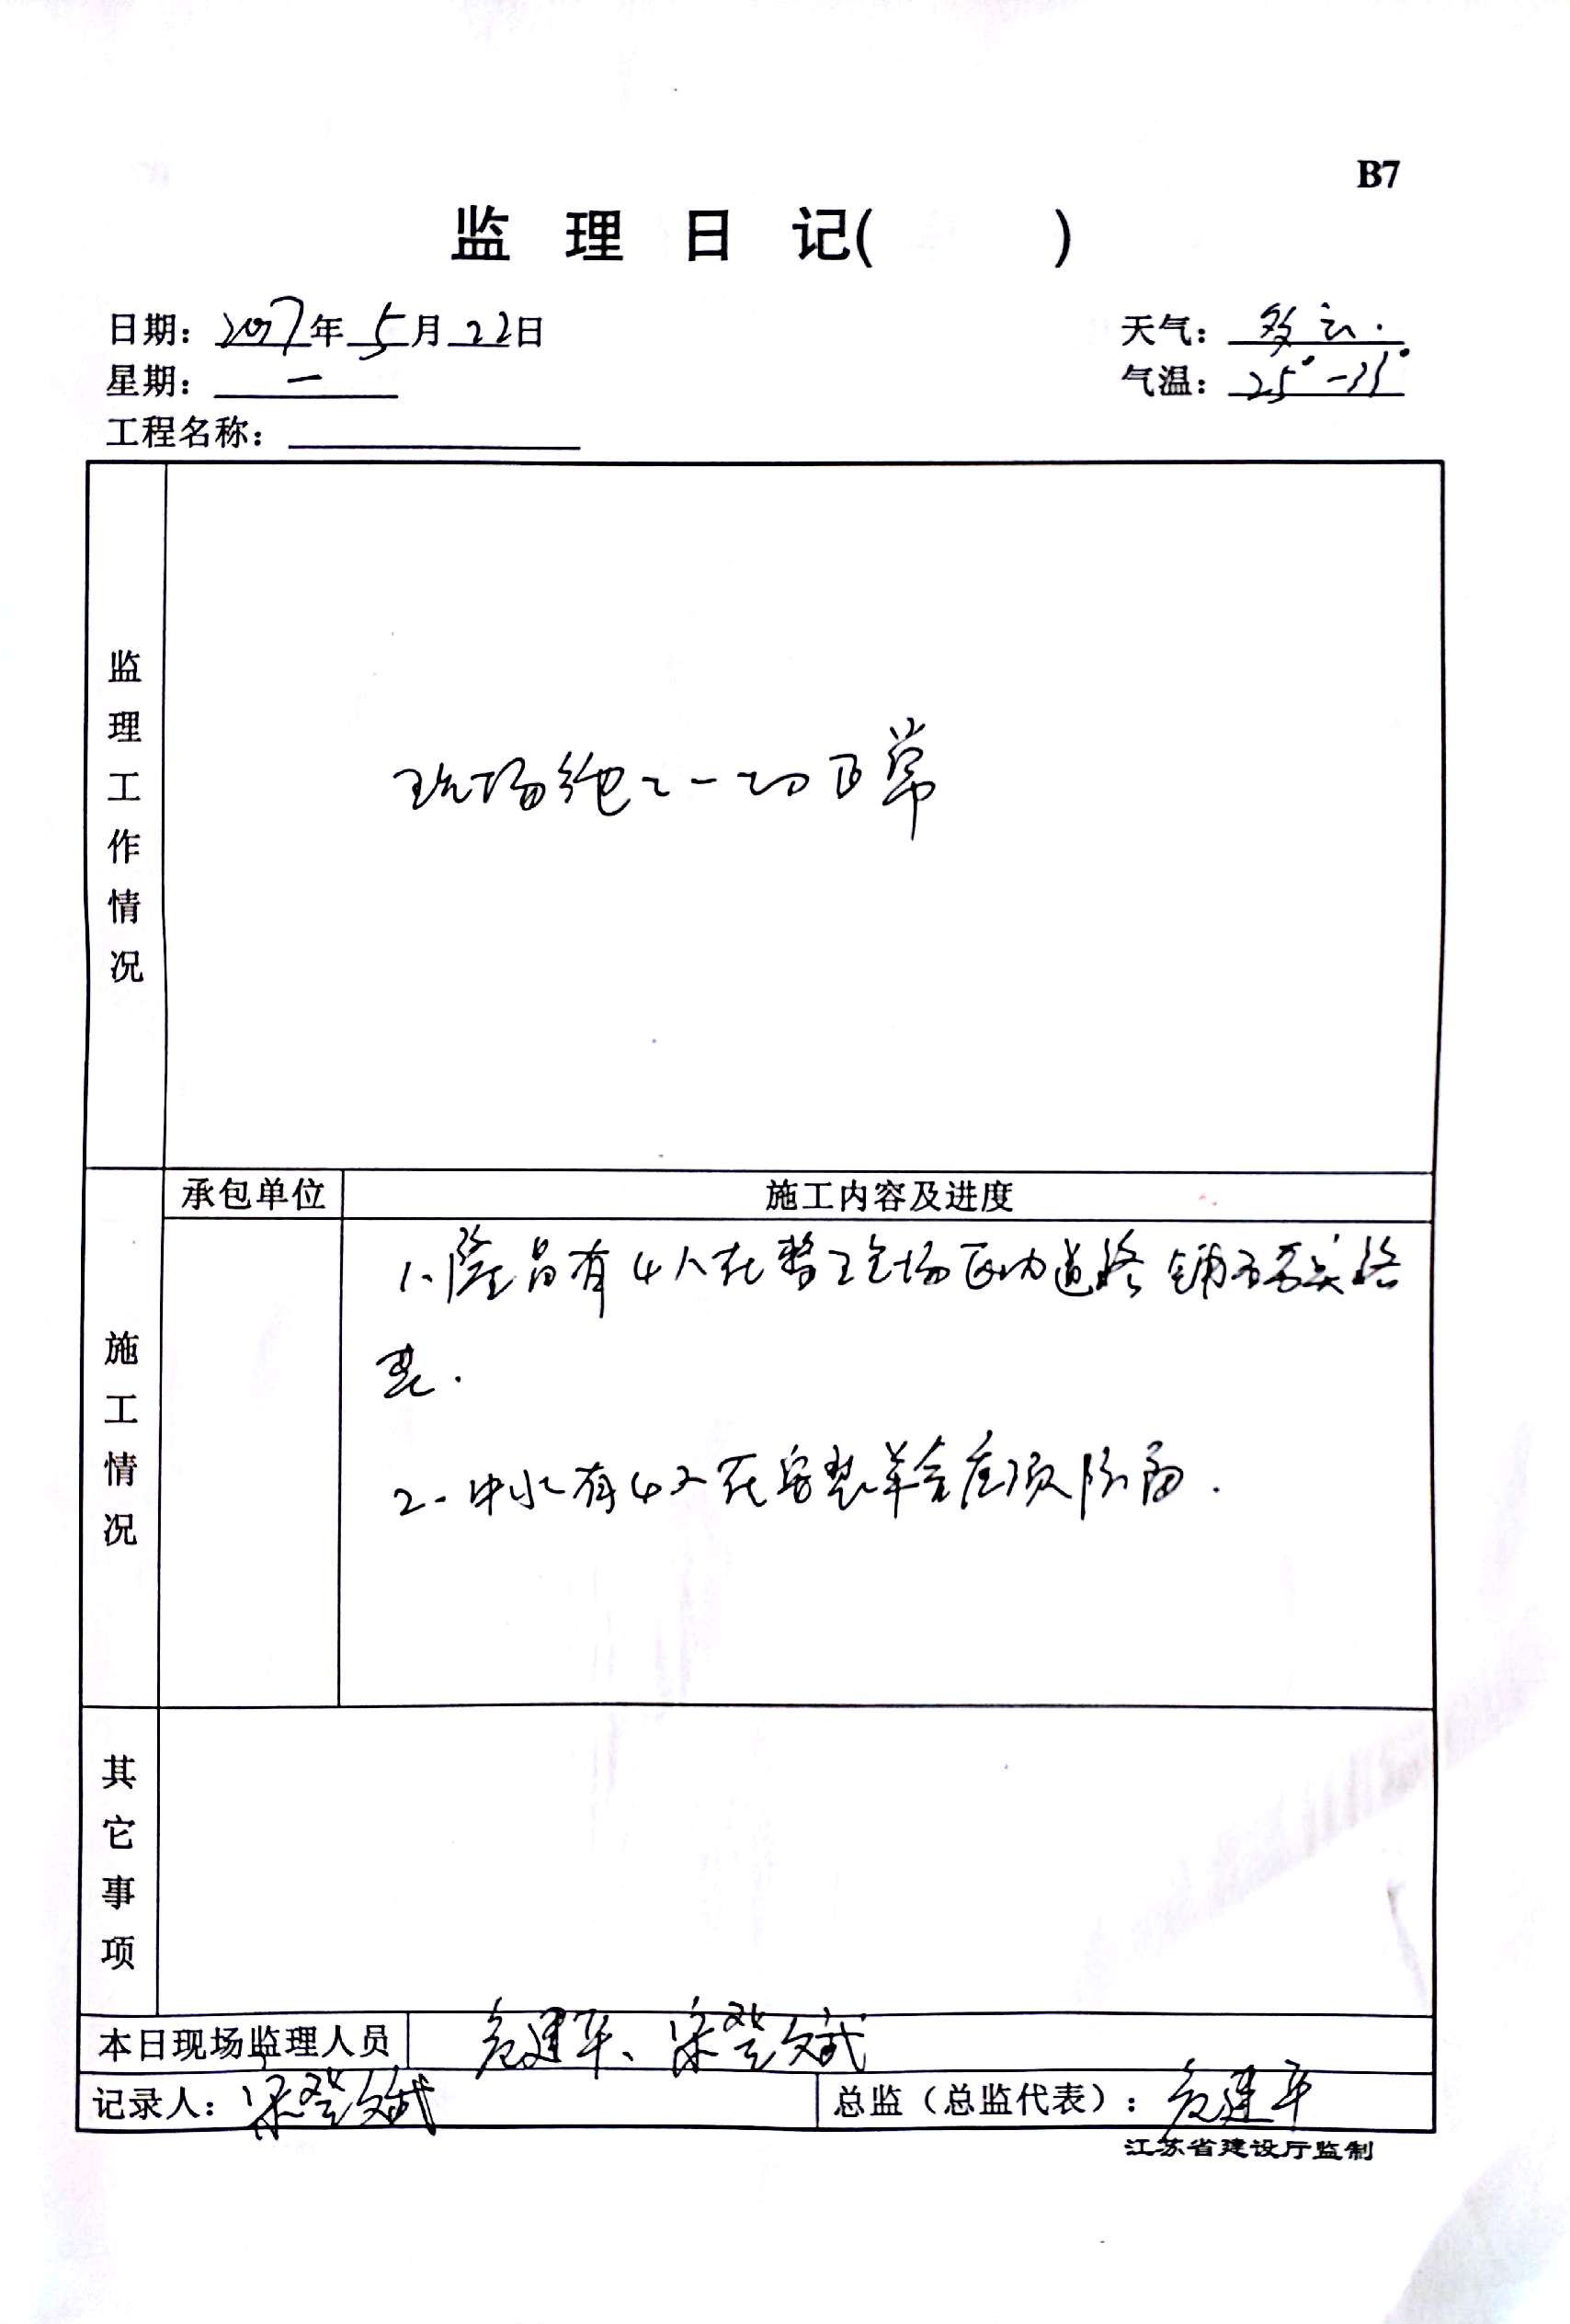 B7
监 理 日 记( )
日期: 2017年 5月 22日
天气: 多云.
星期: 一
气温: 25°-33°
工程名称:
监理工作情况
现场施工一切正常
承包单位 施工内容及进度
施工情况
1、隆昌有4人在整工场区内道路
2. 中北有4人在安装羊舍屋顶
其它事项
本日现场监理人员
记录人:
总监（总监代表）: 建平
江苏省建设厅监制